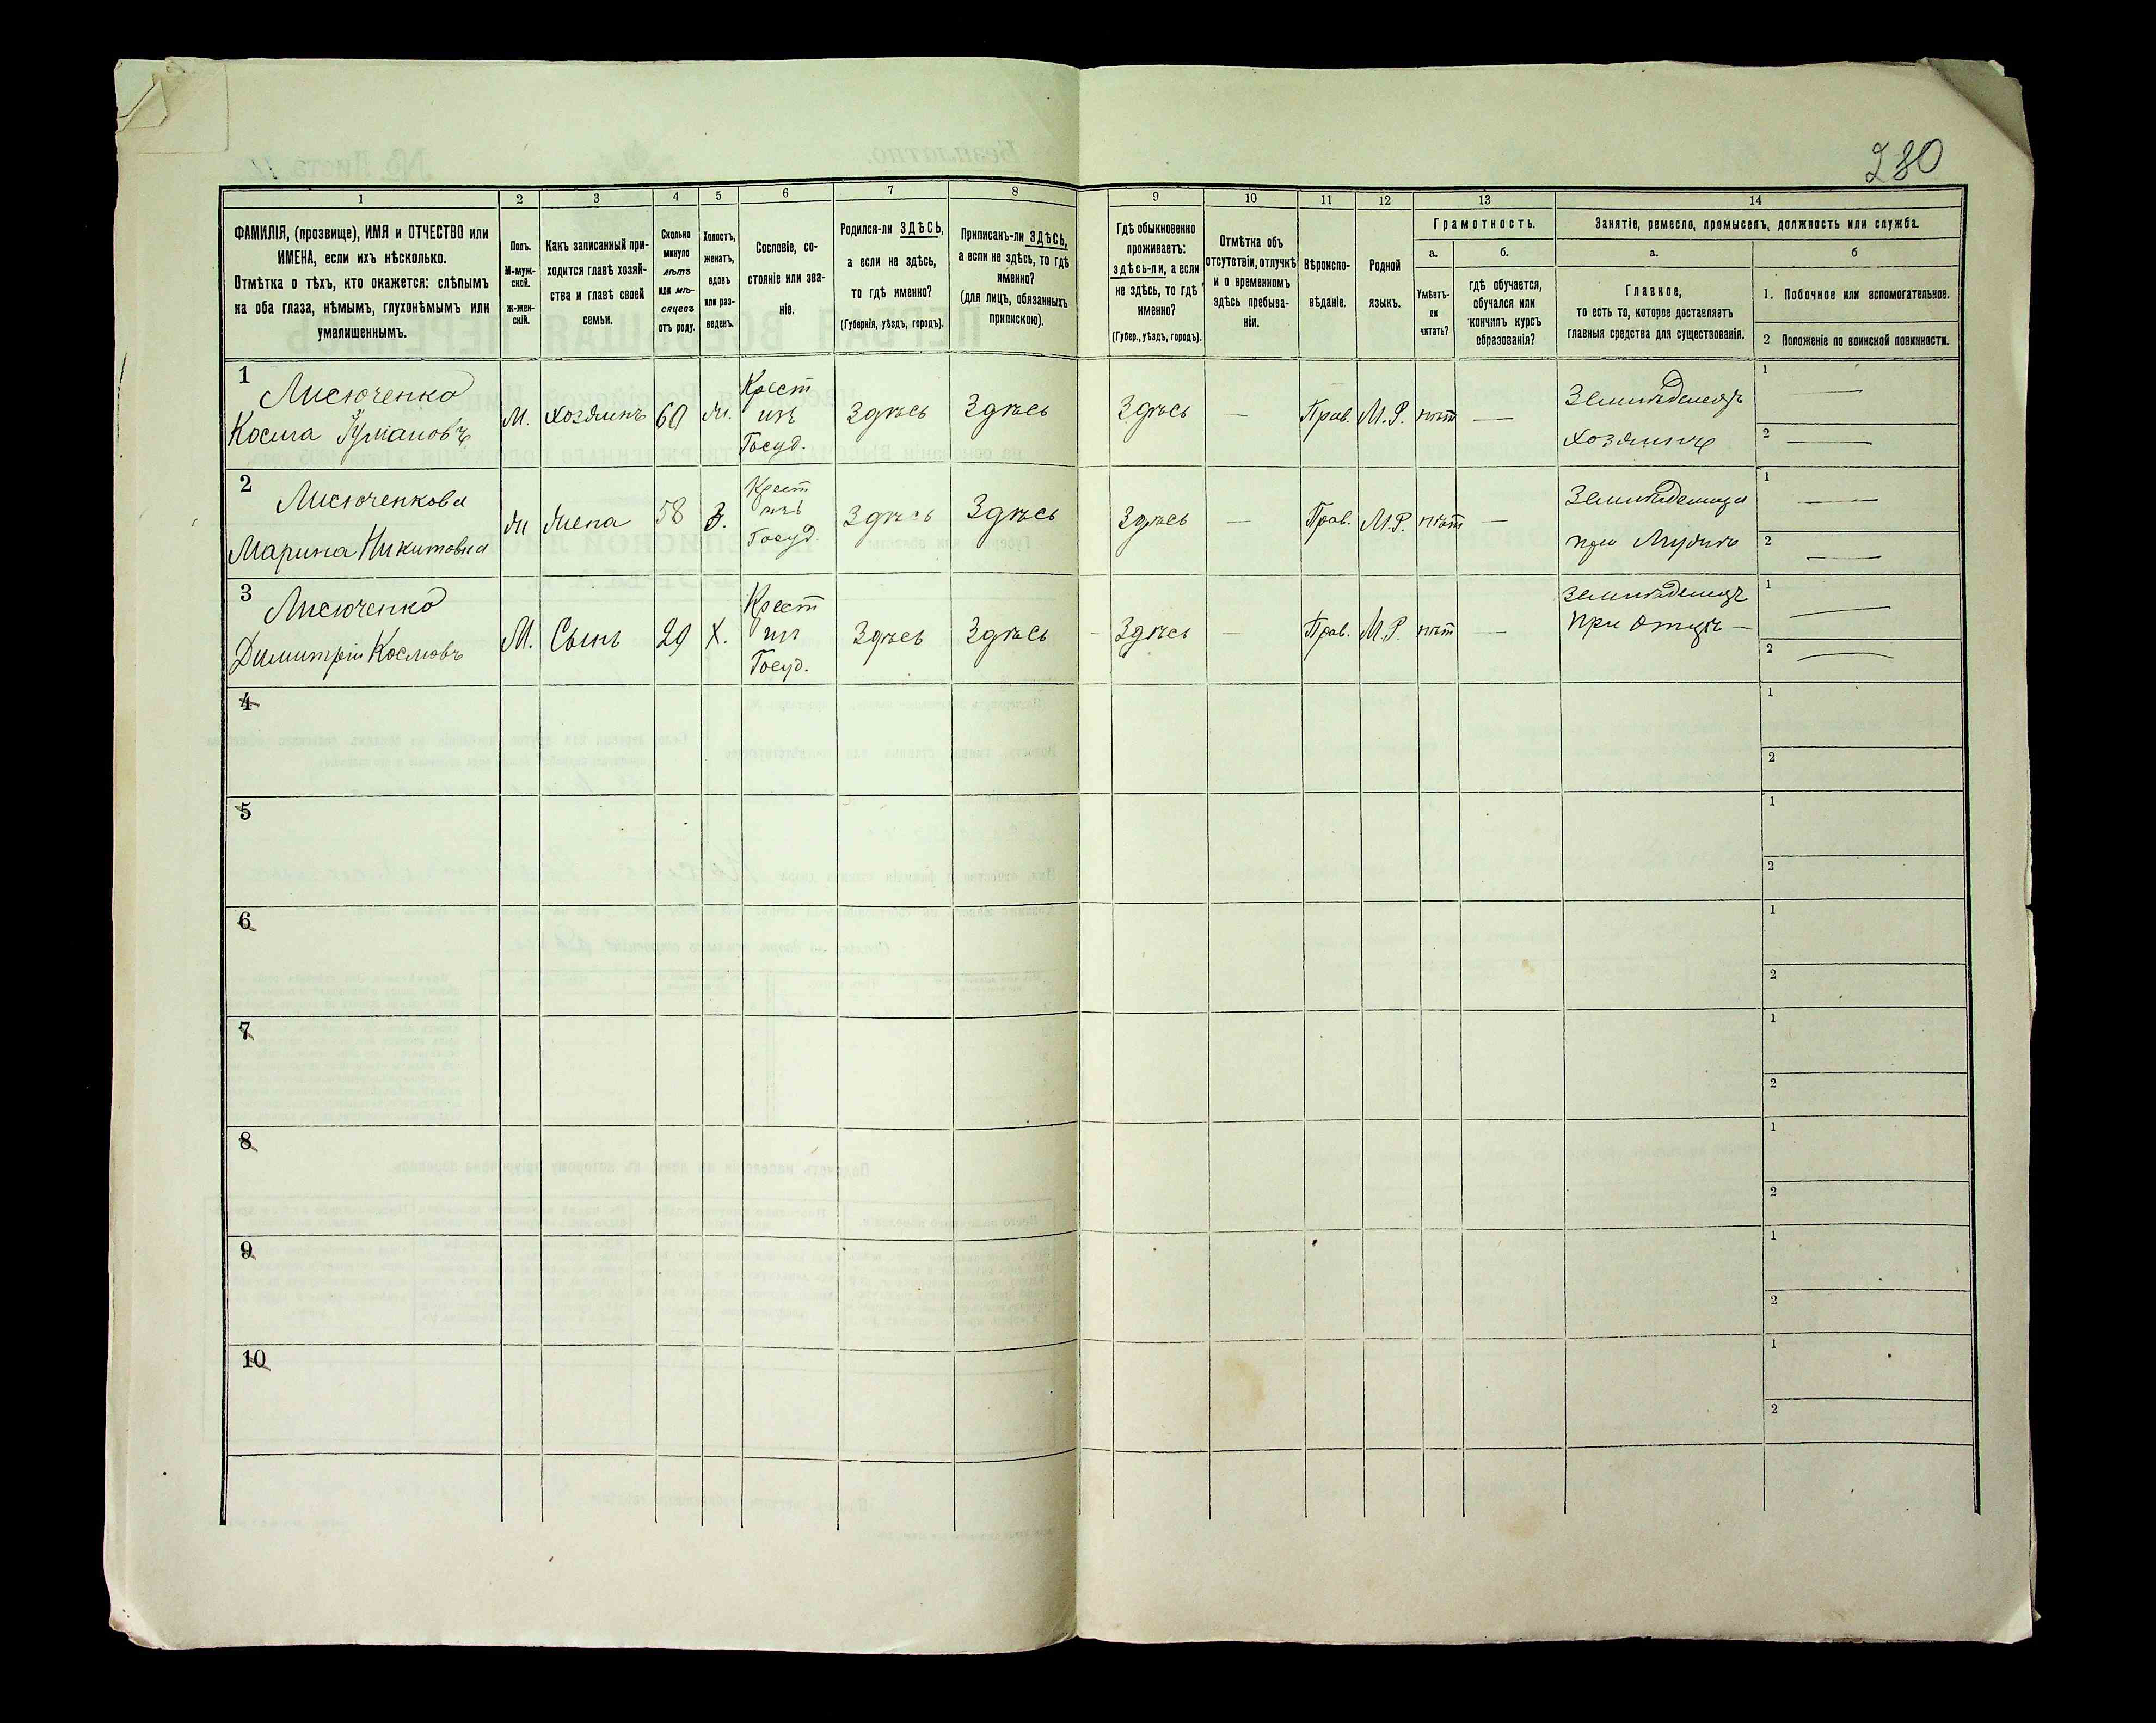 280
1 2 3 4 5 6 7 8 9 10 11 12 13 14
ФАМИЛІЯ, (прозвище), ИМЯ и ОТЧЕСТВО или
ИМЕНА, если ихъ нѣсколько.
Отмѣтка о тѣхъ, кто окажется: слѣпымъ
на оба глаза, нѣмымъ, глухонѣмымъ или
умалишеннымъ.
Полъ.
М-муж-
ской.
ж-жен-
скій.
Какъ записанный при-
ходится главѣ хозяй-
ства и главѣ своей
семьи.
Сколько
минуло
лѣтъ
или мѣ-
сяцевъ
отъ роду.
Холостъ,
женатъ,
вдовъ
или раз-
веденъ.
Сословіе, со-
стояніе или зва-
ніе.
Родился-ли ЗДѢСЬ,
а если не здѣсь,
то гдѣ именно?
(Губернія, уѣздъ, городъ).
Приписанъ-ли ЗДѢСЬ,
а если не здѣсь, то гдѣ
именно?
(для лицъ, обязанныхъ
припискою).
Гдѣ обыкновенно
проживаетъ:
здѣсь-ли, а если
не здѣсь, то гдѣ
именно?
(Губер., уѣздъ, городъ).
Отмѣтка объ
отсутствіи, отлучкѣ
и о временномъ
здѣсь пребыва-
ніи.
Вѣроиспо-
вѣданіе.
Родной
языкъ.
Грамотность.
а.
Умѣетъ-
ли
читать?
б.
гдѣ обучается,
обучался или
кончилъ курсъ
образованія?
Занятіе, ремесло, промыселъ, должность или служба.
а.
Главное,
то есть то, которое доставляетъ
главныя средства для существованія.
б
1. Побочное или вспомогательное.
2 Положеніе по воинской повинности.
1
Лисюченко
Косма
М. хозяинъ 60 ж.
Крест
изъ
Госуд.
Здѣсь Здѣсь Здѣсь — Прав. М.Р. нѣт —
Земледелецъ
хозяинъ
1 —
2 —
2
Лисюченкова
Марина Никитовна
ж жена 58 З.
Крест
изъ
Госуд
Здѣсь Здѣсь Здѣсь — Прав. М.Р. нѣт —
при Мужѣ
1 —
2 —
3
Лисюченко
Димитрій Космовъ
М. Сынъ 29 Х.
Крест
изъ
Госуд.
Здѣсь Здѣсь — Здѣсь — Прав. М.Р. нѣт —
Земледелецъ
при отцѣ —
1 —
2 —
4
1
2
5
1
2
6
1
2
7
1
2
8
1
2
9
1
2
10
1
2